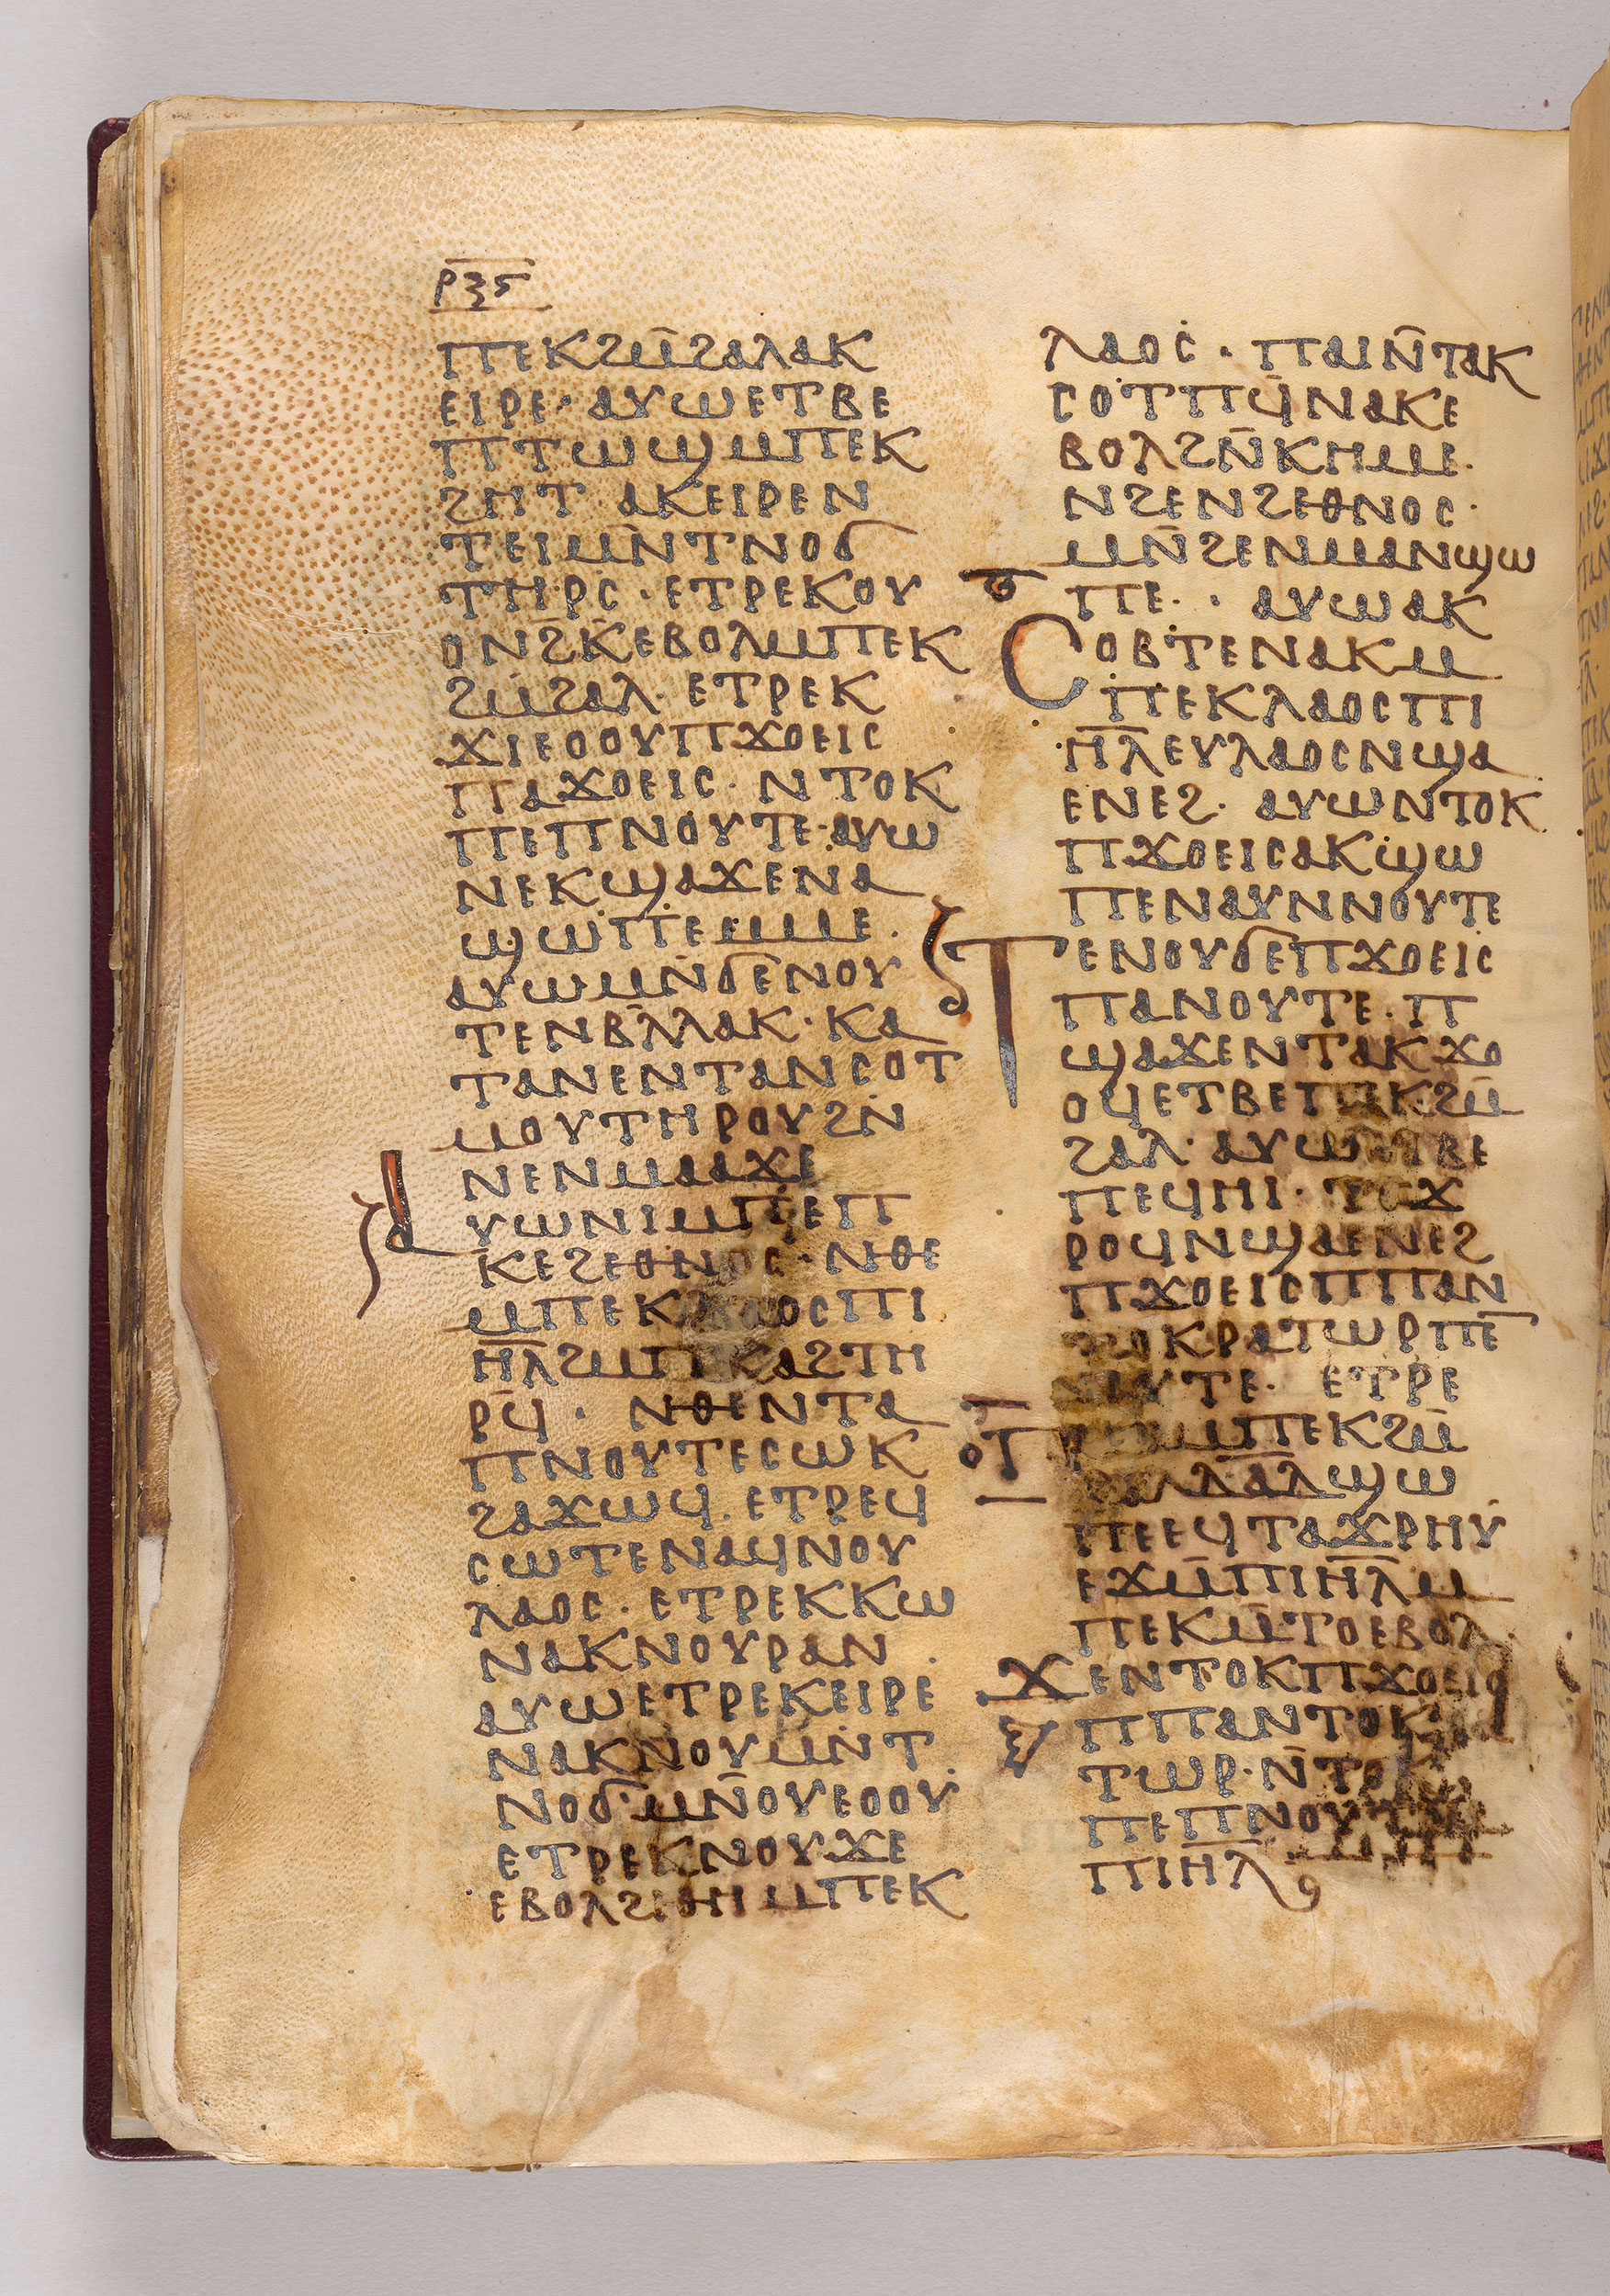 ⲣⲝⲋ
ⲡⲉⲕϩⲙ̄ϩⲁⲗⲁⲕ
ⲉⲓⲣⲉ· ⲁⲩⲱⲉⲧⲃⲉ
ⲡⲧⲱϣⲙⲡⲉⲕ
ϩⲏⲧ ⲁⲕⲉⲓⲣⲉⲛ
ⲧⲉⲓⲙⲛ̄ⲧⲛⲟϭ
ⲧⲏⲣⲥ· ⲉⲧⲣⲉⲕⲟⲩ
ⲟⲛϩ̄ⲕ̄ⲉⲃⲟⲗⲙⲡⲉⲕ
ϩⲙ̄ϩⲁⲗ· ⲉⲧⲣⲉⲕ
ϫⲓⲉⲟⲟⲩⲡϫⲟⲉⲓⲥ
ⲡⲁϫⲟⲉⲓⲥ· ⲛⲧⲟⲕ
ⲡⲉⲡⲛⲟⲩⲧⲉ·ⲁⲩⲱ
ⲛⲉⲕϣⲁϫⲉⲛⲁ
ϣⲱⲡⲉⲙⲙⲉ·
ⲁⲩⲱⲙⲛϭⲉⲛⲟⲩ
ⲧⲉⲛⲃⲗ̄ⲗⲁⲕ· ⲕⲁ
ⲧⲁⲛⲉⲛⲧⲁⲛⲥⲟⲧ
ⲙⲟⲩⲧⲏⲣⲟⲩϩⲛ
ⲛⲉⲛⲙⲁⲁϫⲉ
ⲁⲩⲱⲛⲓⲙⲡⲉⲡ
ⲕⲉϩⲉⲑⲛⲟⲥ· ⲛⲑⲉ
ⲙⲡⲉⲕⲗⲁⲟⲥⲡⲓ
ⲏ̄ⲗϩⲙⲡⲕⲁϩⲧⲏ
ⲣϥ̄· ⲛⲑⲉⲛⲧⲁ
ⲡⲛⲟⲩⲧⲉⲥⲱⲕ
ϩⲁϫⲱϥ· ⲉⲧⲣⲉϥ
ⲥⲱⲧⲉⲛⲁϥⲛⲟⲩ
ⲗⲁⲟⲥ· ⲉⲧⲣⲉⲕⲕⲱ
ⲛⲁⲕⲛⲟⲩⲣⲁⲛ
ⲁⲩⲱⲉⲧⲣⲉⲕⲉⲓⲣⲉ
ⲛⲁⲕⲛⲟⲩⲙⲛⲧ
ⲛⲟϭ·ⲙⲛ̄ⲟⲩⲉⲟⲟⲩ
ⲉⲧⲣⲉⲕⲛⲟⲩϫⲉ
ⲉⲃⲟⲗϩⲓⲑⲏⲙⲡⲉⲕ
ⲗⲁⲟⲥ· ⲡⲁⲓⲛ̄ⲧⲁⲕ
ⲥⲟⲧⲡϥ̄ⲛⲁⲕⲉ
ⲃⲟⲗϩⲛ̄ⲕⲏⲙⲉ·
ⲛϩⲉⲛϩⲉⲑⲛⲟⲥ·
ⲙⲛ̄ϩⲉⲛⲙⲁⲛϣⲱ
ⲡⲉ· · ⲁⲩⲱⲁⲕ
ⲥⲟⲃⲧⲉⲛⲁⲕⲙ
ⲡⲉⲕⲗⲁⲟⲥⲡⲓ
ⲏ̄ⲗⲉⲩⲗⲁⲟⲥⲛϣⲁ
ⲉⲛⲉϩ· ⲁⲩⲱⲛⲧⲟⲕ
ⲡϫⲟⲉⲓⲥⲁⲕϣⲱ
ⲡⲉⲛⲁⲩⲛⲛⲟⲩⲧⲉ
ⲧⲉⲛⲟⲩϭⲉⲡϫⲟⲉⲓⲥ
ⲡⲁⲛⲟⲩⲧⲉ· ⲡ
ϣⲁϫⲉⲛⲧⲁⲕϫⲟ
ⲟϥⲉⲧⲃⲉⲡⲉⲕϩⲙ̄
ϩⲁⲗ· ⲁⲩⲱⲉⲧⲃⲉ
ⲡⲉϥⲏⲓ· ⲧⲁϫ
ⲣⲟϥⲛϣⲁⲉⲛⲉϩ
ⲡϫⲟⲉⲓⲥⲡⲡⲁⲛ
ⲧⲟⲕⲣⲁⲧⲱⲣⲡⲉ̄
ⲛⲟⲩⲧⲉ· ⲉⲧⲣⲉ
ⲡⲏⲓⲙⲡⲉⲕϩⲙ̄
ϩⲁⲗⲇⲁ̄ⲇϣⲱ
ⲡⲉⲉϥⲧⲁϫⲣⲏⲩ
ⲉϫⲙ̄ⲡⲓⲏ̄ⲗⲙ
ⲡⲉⲕⲙ̄ⲧⲟⲉⲃⲟⲗ·
ϫⲉⲛⲧⲟⲕⲡϫⲟⲉⲓⲥ
ⲡⲡⲁⲛⲧⲟⲕⲣⲁ
ⲧⲱⲣ·ⲛ̄ⲧⲟⲕ
ⲡⲉⲡⲛⲟⲩⲧⲉ
ⲙⲡ
ⲡⲓⲏ̄ⲗ